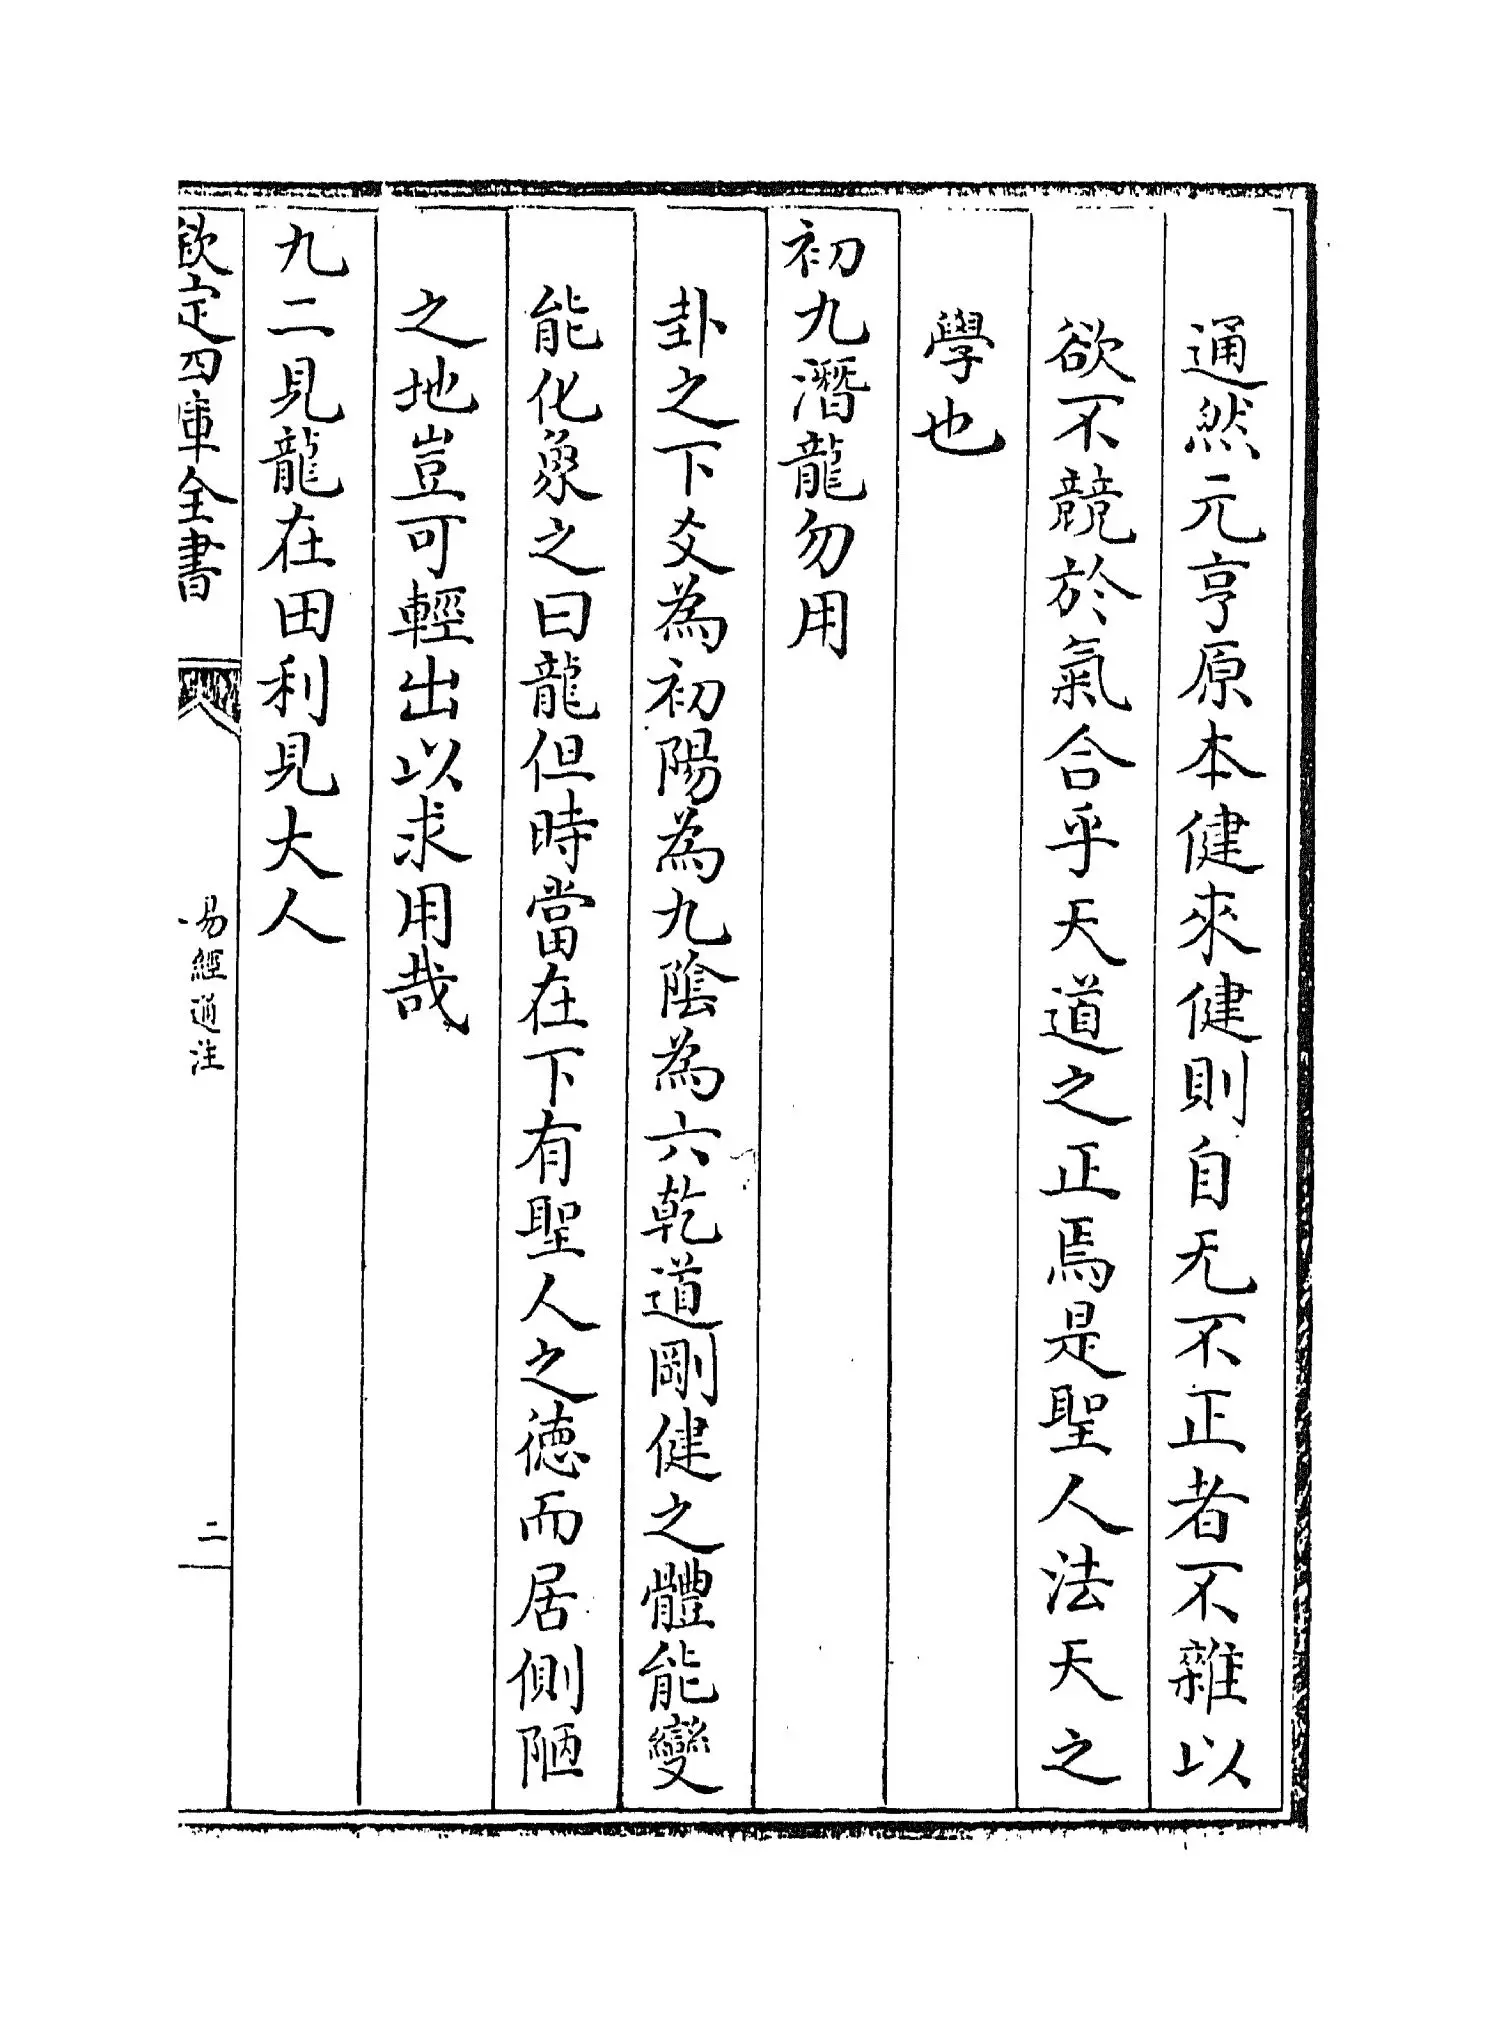 通然元亨原本健來健則自无不正者不雜以
欲不競於氣合乎天道之正焉是聖人法天之
學也
初九潛龍勿用
卦之下爻為初陽為九陰為六乾道剛健之體能變
能化象之曰龍但時當在下有聖人之德而居側陋
之地豈可輕出以求用哉
九二見龍在田利見大人
欽定四庫全書
易經通注
二